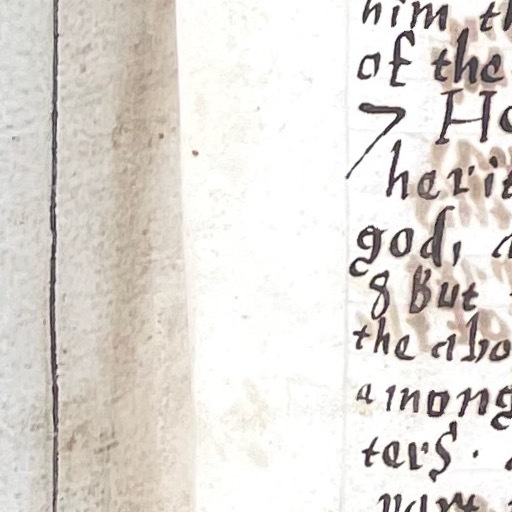 him th
of the
7 Ho
herit
god, a
8 But
the abo
among
ters. 
part